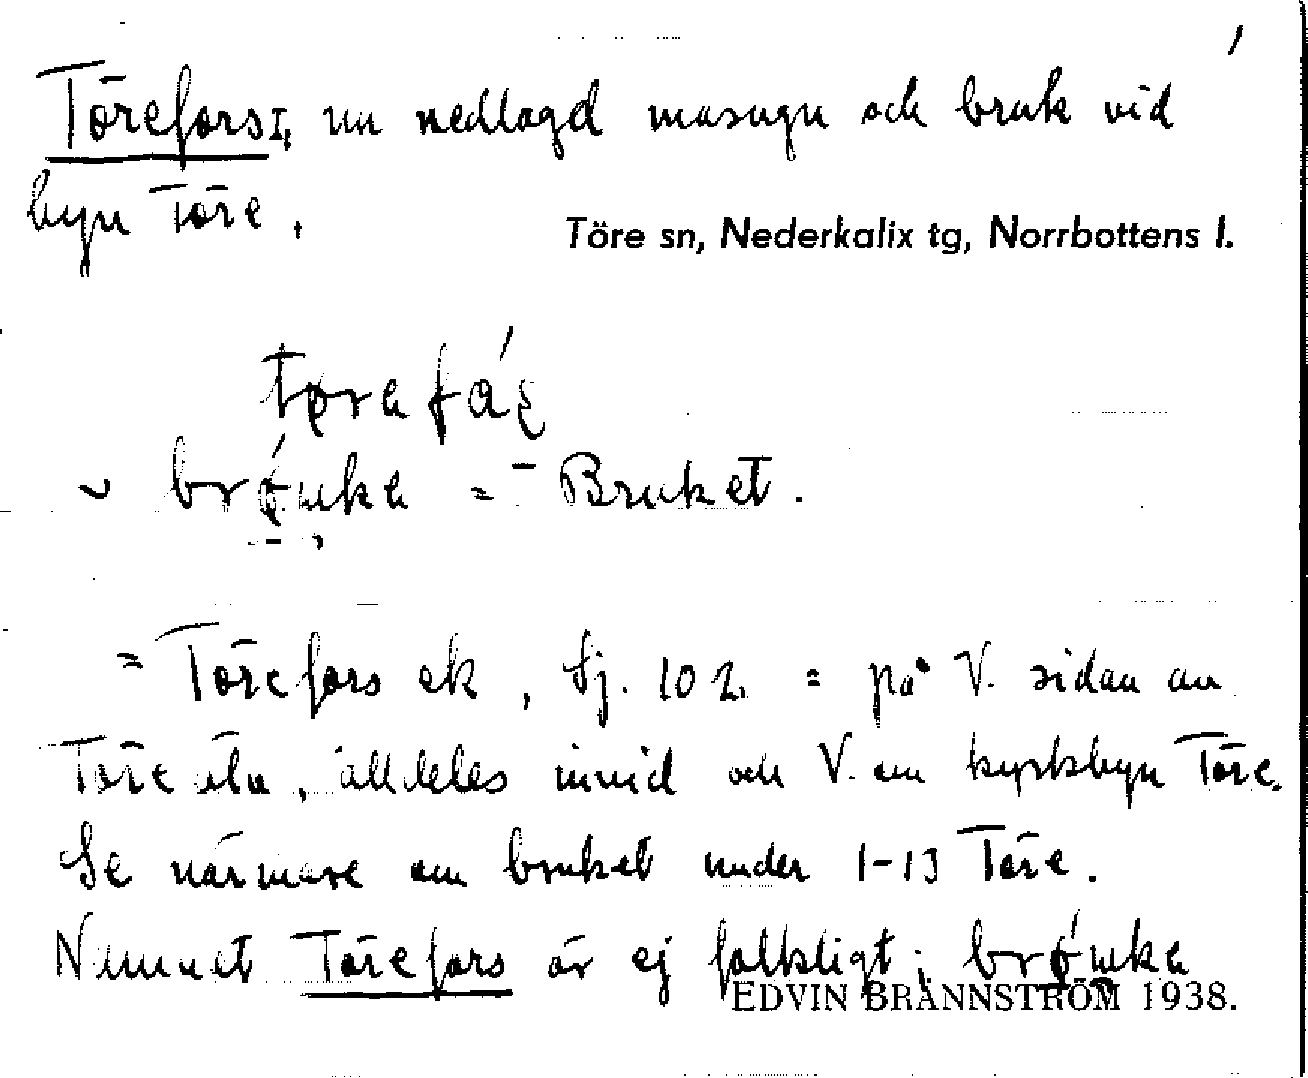 Törefors I, nu nedlagd masugn och bruk vid
byn Töre.
Töre sn, Nederkalix tg, Norrbottens l.
= Bruket.
= Törefors ek, Sj. 102 = på V. sidan om
Töre älv, alldeles invid och V. om kyrkbyn Töre.
Se närmare om bruket under 1-13 Töre.
Namnet Törefors är ej folkligt;
EDVIN BRÄNNSTRÖM 1938.